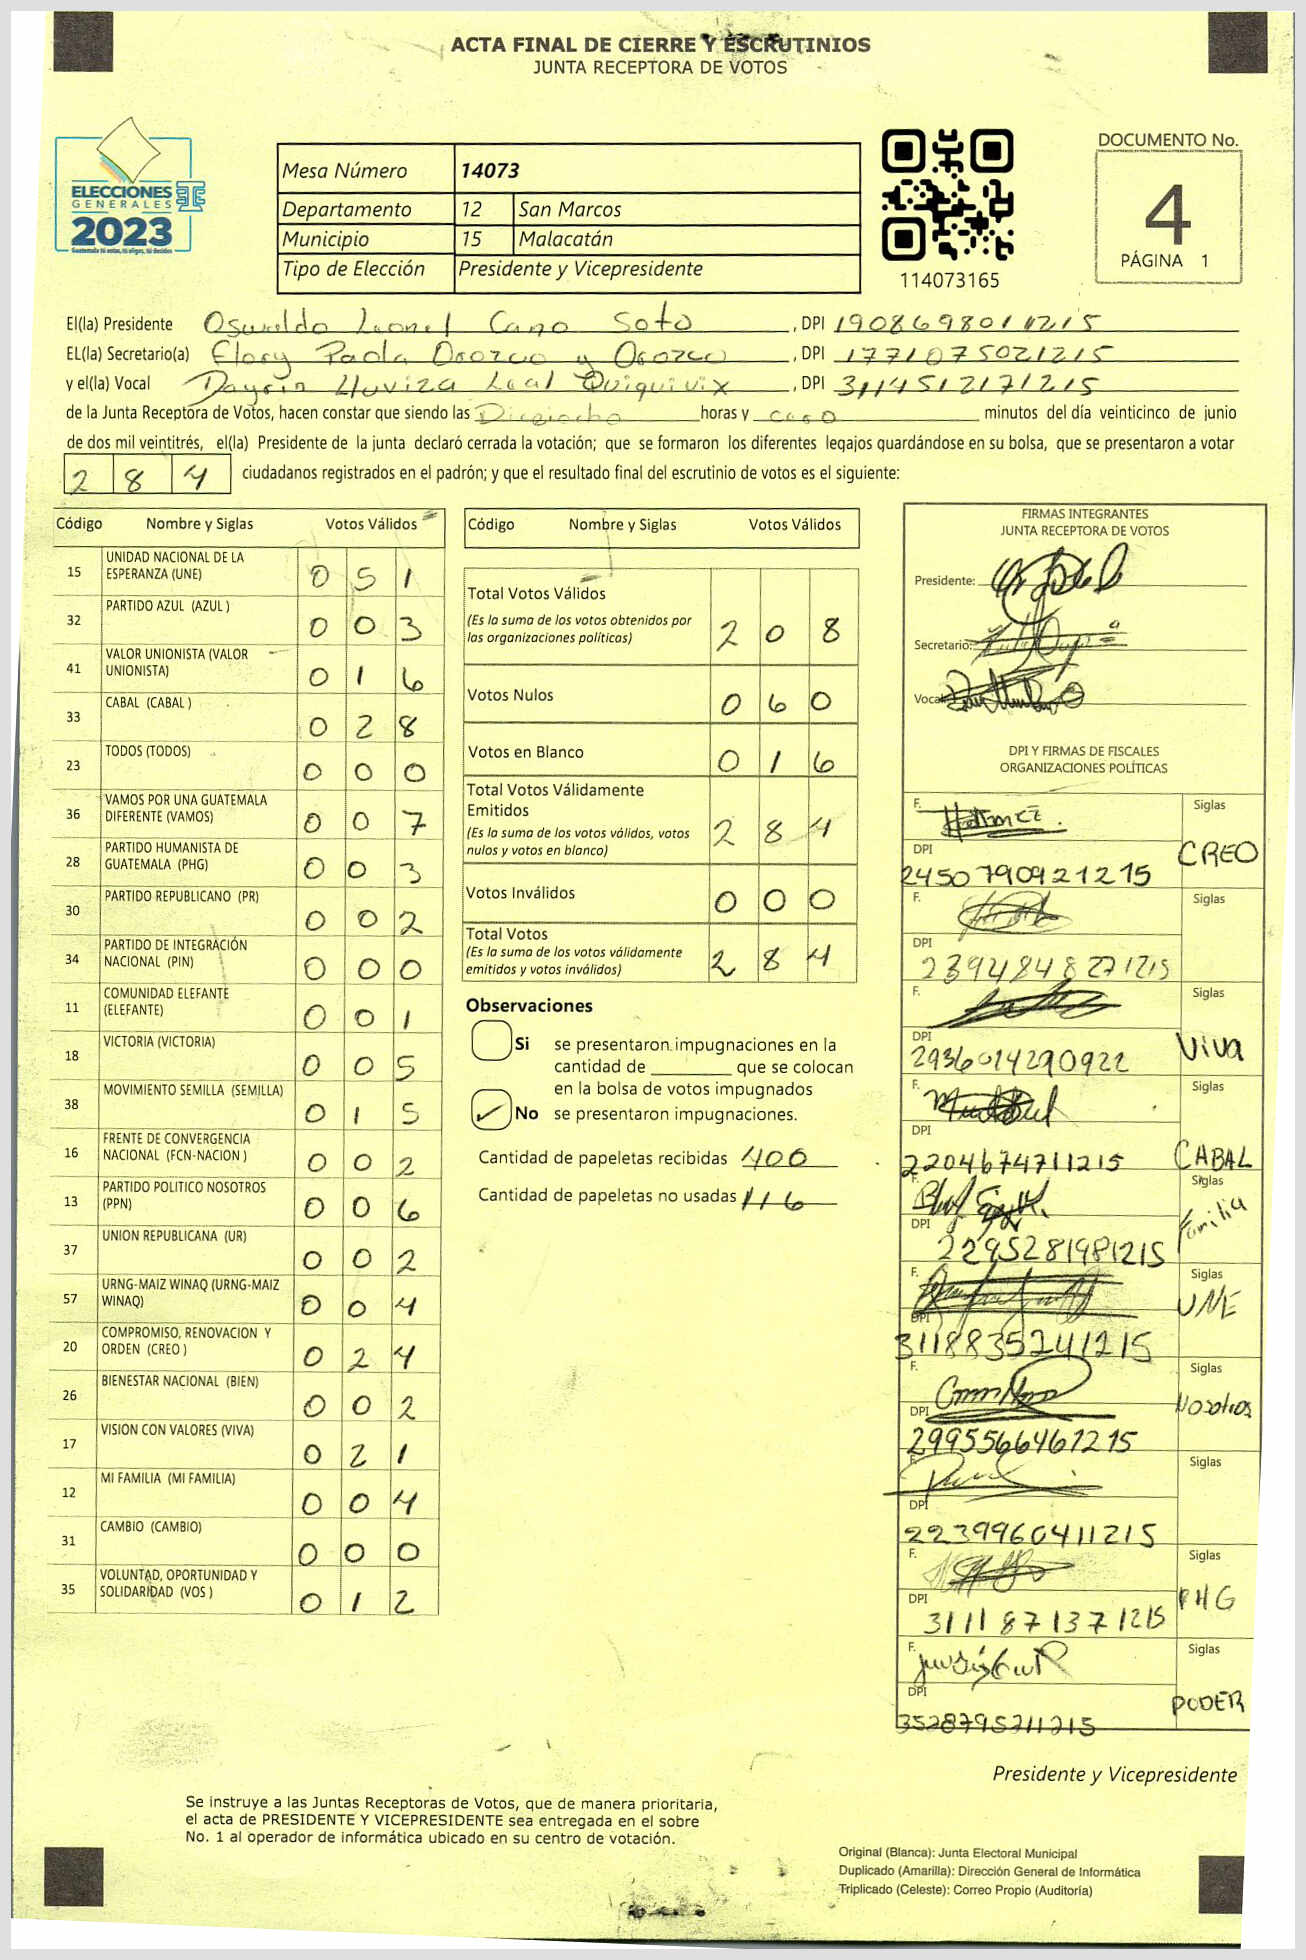 ACTA FINAL DE CIERRE Y ESCRUTINIOS
JUNTA RECEPTORA DE VOTOS
ELECCIONES
GENERALES
2023
Mesa Número 14073
Departamento 12 San Marcos
Municipio 15 Malacatán
Tipo de Elección Presidente y Vicepresidente
114073165
DOCUMENTO No.
4
PÁGINA 1
El(la) Presidente Oswaldo Leonel Cano Soto, DPI 1908698011215
EL(la) Secretario(a) Flory Paola Orozco y Orozco, DPI 1771075021215
y el(la) Vocal Dayrin Lluviza Leal Quiquivix, DPI 3114512171215
de la Junta Receptora de Votos, hacen constar que siendo las Dieciocho horas y cero minutos del día veinticinco de junio
de dos mil veintitrés, el(la) Presidente de la junta declaró cerrada la votación; que se formaron los diferentes legajos guardándose en su bolsa, que se presentaron a votar
284 ciudadanos registrados en el padrón; y que el resultado final del escrutinio de votos es el siguiente:
Código Nombre y Siglas Votos Válidos
15 UNIDAD NACIONAL DE LA ESPERANZA (UNE) 051
32 PARTIDO AZUL (AZUL ) 003
41 VALOR UNIONISTA (VALOR UNIONISTA) 016
33 CABAL (CABAL ) 028
23 TODOS (TODOS) 000
36 VAMOS POR UNA GUATEMALA DIFERENTE (VAMOS) 007
28 PARTIDO HUMANISTA DE GUATEMALA (PHG) 003
30 PARTIDO REPUBLICANO (PR) 002
34 PARTIDO DE INTEGRACIÓN NACIONAL (PIN) 000
11 COMUNIDAD ELEFANTE (ELEFANTE) 001
18 VICTORIA (VICTORIA) 005
38 MOVIMIENTO SEMILLA (SEMILLA) 015
16 FRENTE DE CONVERGENCIA NACIONAL (FCN-NACION ) 002
13 PARTIDO POLITICO NOSOTROS (PPN) 006
37 UNION REPUBLICANA (UR) 002
57 URNG-MAIZ WINAQ (URNG-MAIZ WINAQ) 004
20 COMPROMISO, RENOVACION Y ORDEN (CREO ) 024
26 BIENESTAR NACIONAL (BIEN) 002
17 VISION CON VALORES (VIVA) 021
12 MI FAMILIA (MI FAMILIA) 004
31 CAMBIO (CAMBIO) 000
35 VOLUNTAD, OPORTUNIDAD Y SOLIDARIDAD (VOS ) 012
Código Nombre y Siglas Votos Válidos
Total Votos Válidos
(Es la suma de los votos obtenidos por
las organizaciones políticas) 208
Votos Nulos 060
Votos en Blanco 016
Total Votos Válidamente
Emitidos
(Es la suma de los votos válidos, votos
nulos y votos en blanco) 284
Votos Inválidos 000
Total Votos
(Es la suma de los votos válidamente
emitidos y votos inválidos) 284
Observaciones
Si se presentaron impugnaciones en la
cantidad de ________ que se colocan
en la bolsa de votos impugnados
No se presentaron impugnaciones.
Cantidad de papeletas recibidas 400
Cantidad de papeletas no usadas 116
FIRMAS INTEGRANTES
JUNTA RECEPTORA DE VOTOS
Presidente:
Secretario:
Vocal
DPI Y FIRMAS DE FISCALES
ORGANIZACIONES POLÍTICAS
F. Siglas
DPI CREO
2450790921215
F. Siglas
DPI
2394848271215
F. Siglas
DPI Viva
2936014290922
F. Siglas
DPI
2204674711215 CABAL
F. Siglas
DPI Familia
2295281981215
F. Siglas
DPI UNE
3118835241215
F. Siglas
DPI Nosotros
2995566461215
F. Siglas
DPI
2239960411215
F. Siglas
DPI PHG
3111871371215
F. Siglas
DPI PODER
3528795211215
Presidente y Vicepresidente
Se instruye a las Juntas Receptoras de Votos, que de manera prioritaria,
el acta de PRESIDENTE Y VICEPRESIDENTE sea entregada en el sobre
No. 1 al operador de informática ubicado en su centro de votación.
Original (Blanca): Junta Electoral Municipal
Duplicado (Amarilla): Dirección General de Informática
Triplicado (Celeste): Correo Propio (Auditoría)